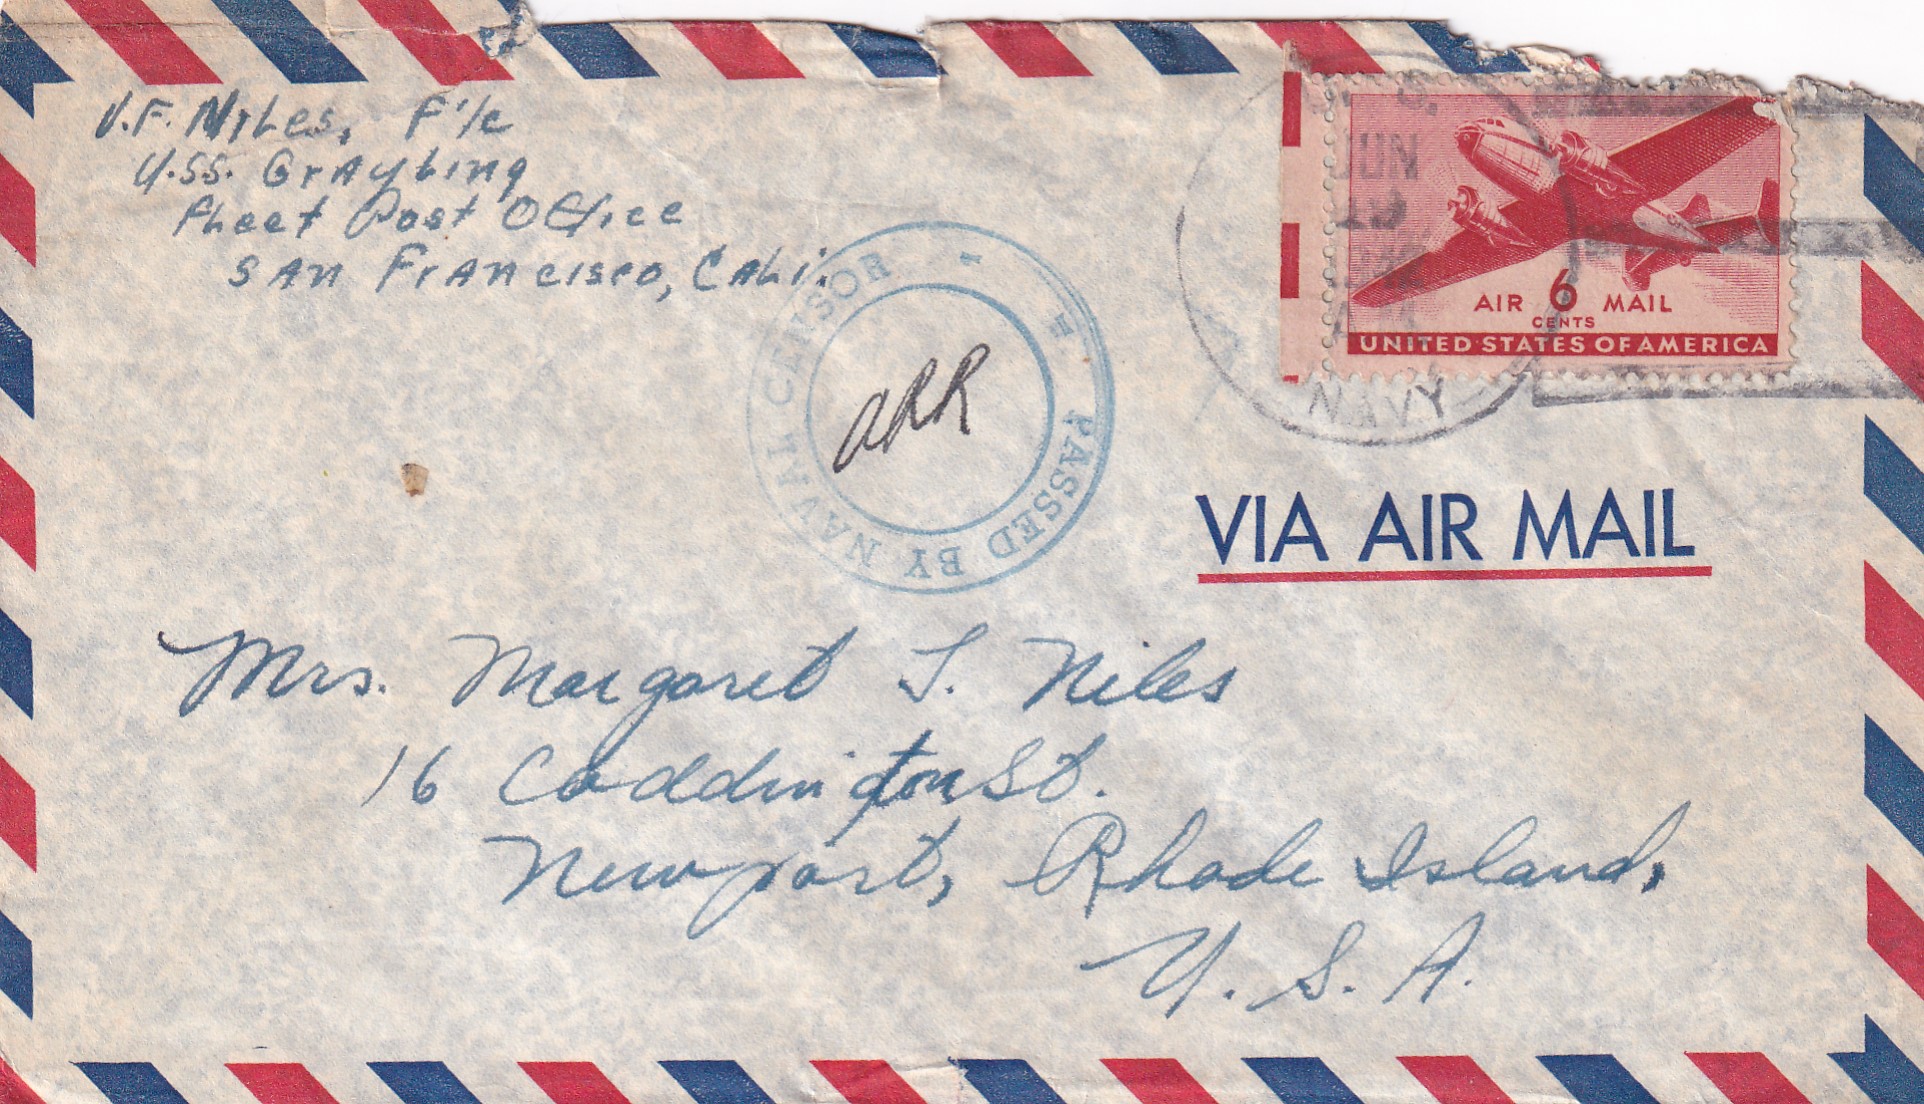 V.F. Niles, F'/c
U.S.S. Grayling
Fleet Post Office
San Francisco, Cali.
PASSED BY NAVAL CENSOR
ARR
U.S.
JUN
19
NAVY
AIR 6 MAIL
CENTS
UNITED STATES OF AMERICA
VIA AIR MAIL
Mrs. Margaret T. Niles
16 Coddington St.
Newport, Rhode Island,
U.S.A.